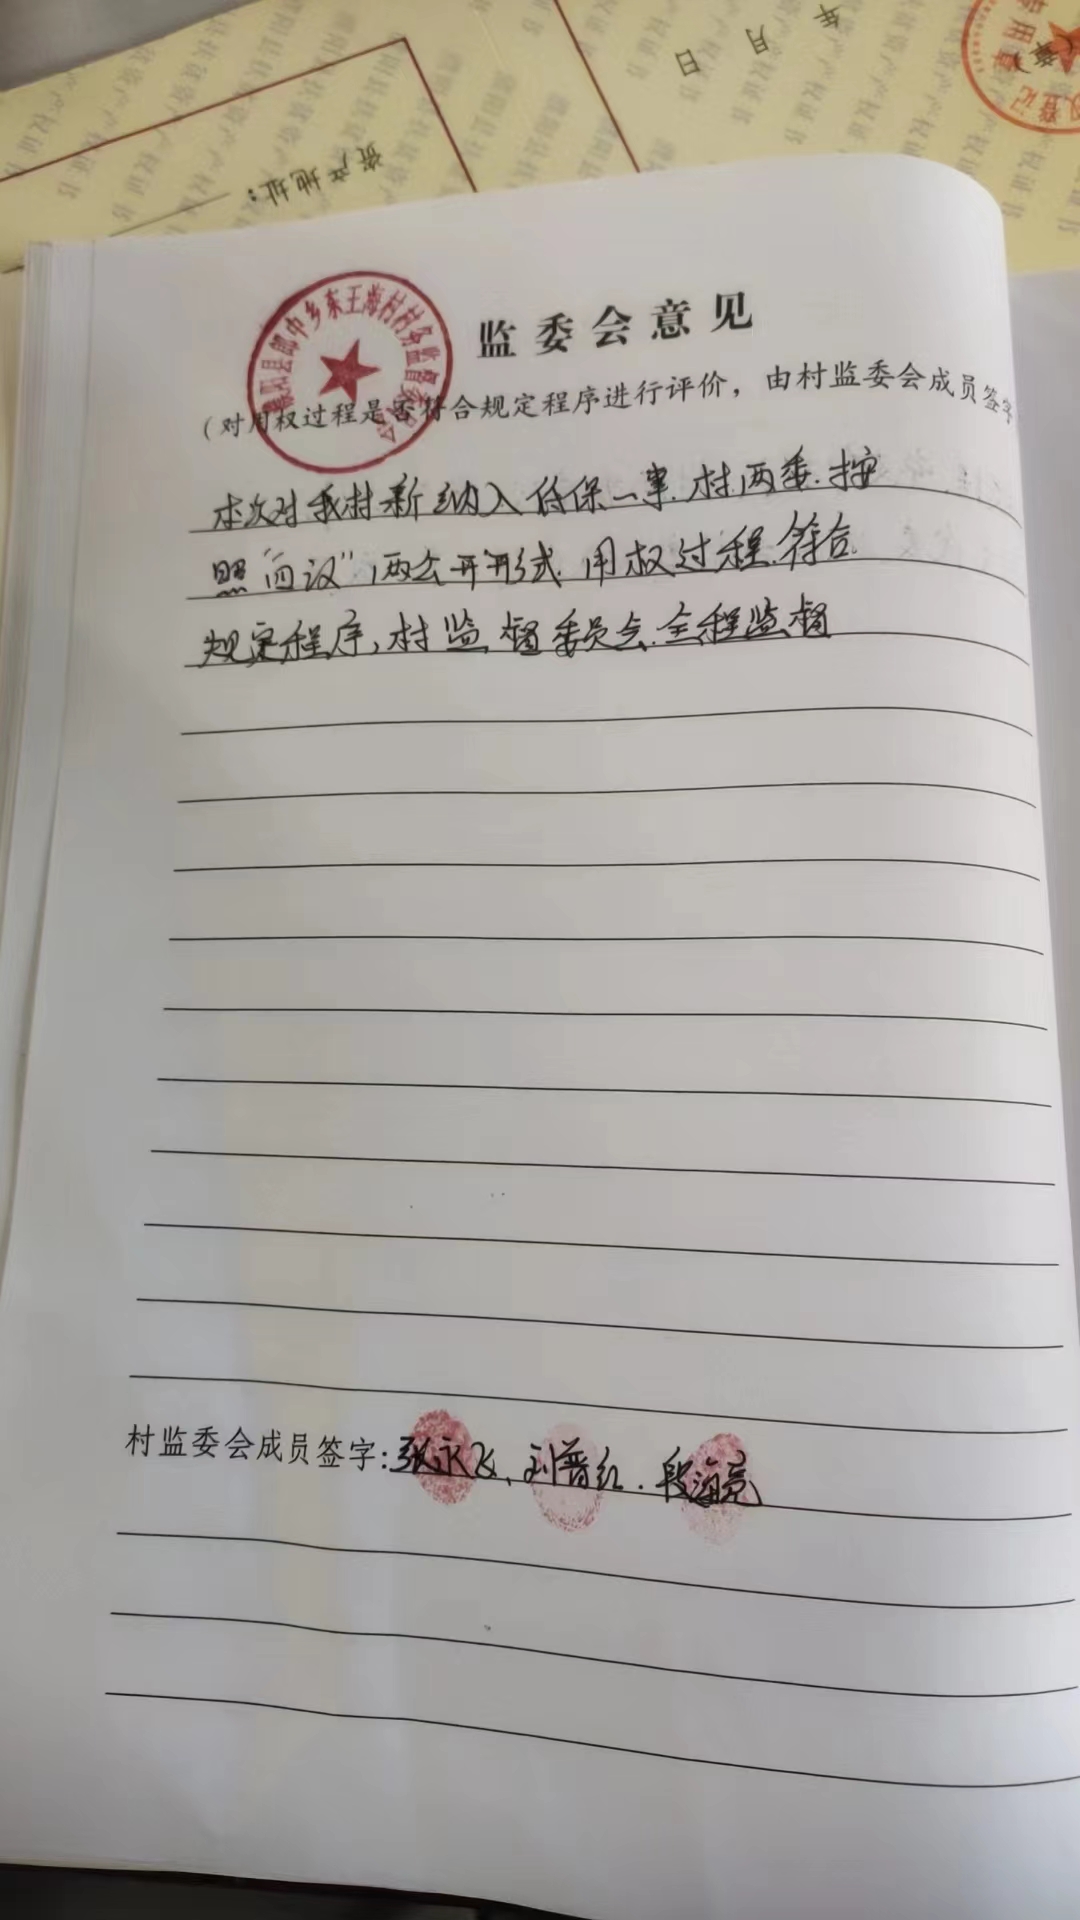 年 月 日
资产地址:
濮阳县郎中乡东王海村村务监督委员会
监委会意见
(对用权过程是否符合规定程序进行评价，由村监委会成员签字
本次对我村新纳入低保一事.村.两委.按
照“四议”两公开形式.用权过程.符合
规定程序,村监督委员会.全程监督
村监委会成员签字:张永飞、刘普红.段海亮